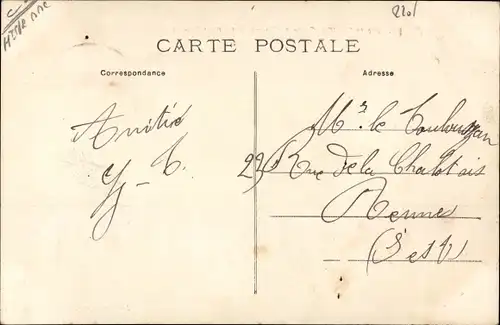 2201
CARTE POSTALE
Correspondance
Adresse
Amitié
Y-T.
Mr. le Toulouzan
29 Rue de la Chalotais
Renne
(I et V)